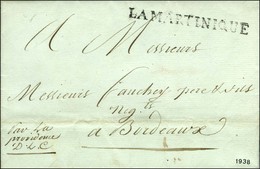 LA MARTINIQUE
A Messieurs
Messieurs Fauchey pere & fils
Neg.ts
a Bordeaux
Par La
providence
D L C
1938